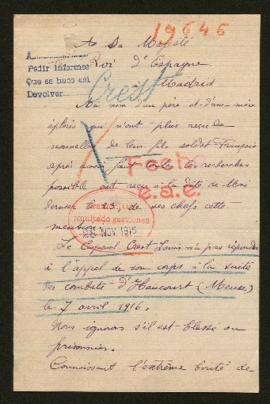 19646
A Sa Majesté
Roi d'Espagne
à Madrid
A
Pedir informes
Que se haga así
Devolver
Crest
Au nom d'un père et d'une mère
éplorés qui n'ont plus reçu de
nouvelles de leur fils soldat Français
après avoir fait toutes les recherches
possible ont reçu à la date du
dernier le 13, de ses chefs cette
mention:
Fecho
e.s.e.
NOV. 1916
Le Caporal Crest Louis n'a pas répondu
à l'appel de son corps à la suite
des combats d'Haucourt (Meuse)
le 7 avril 1916.
Nous ignorons s'il est blessé ou
prisonnier.
Connaissant l'extrême bonté de